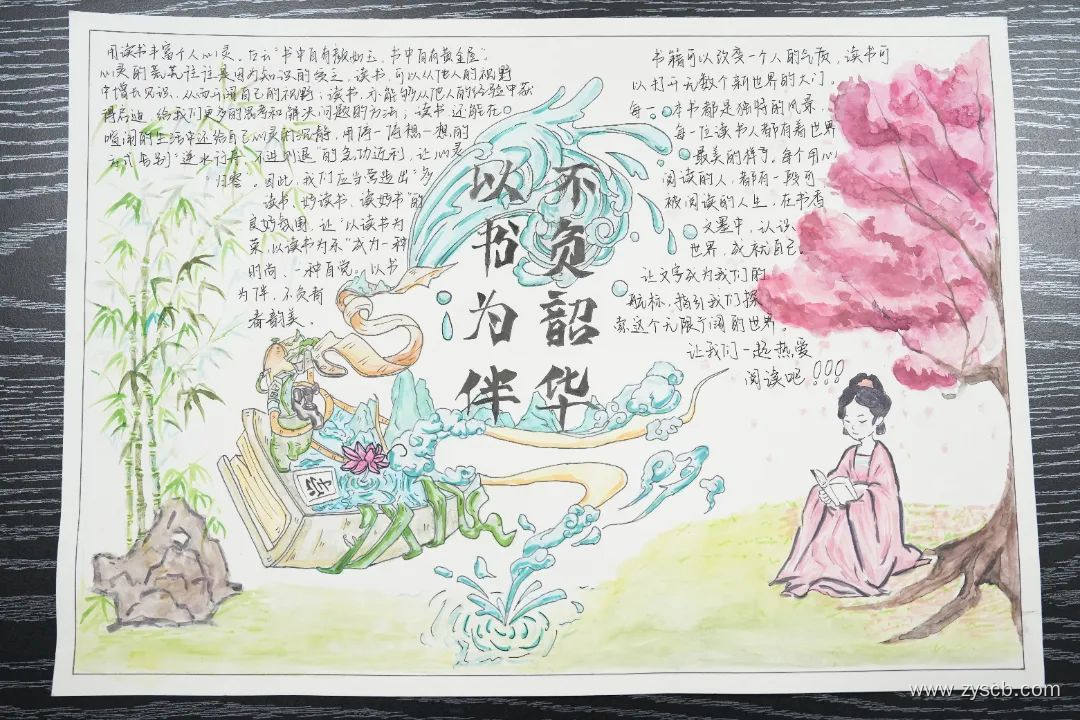 用读书丰富个人心灵。古云"书中自有颜如玉,书中自有黄金屋"。
心灵的荒芜往往是因为知识的贫乏。读书,可以从他人的视野
中增长见识,从而开阔自己的视野;读书,亦能够从他人的经验中获
得启迪,给我们更多的思考和解决问题的方法;读书,还能在
喧闹的生活中还给自己心灵的沉静,用停一停想一想的
方式告别"逆水行舟,不进则退"的急功近利,让心灵
归整。因此,我们应当营造出"多
读书,好读书,读好书"的
良好氛围,让"以读书为
荣,以读书为乐"成为一种
时尚、一种自觉。以书
为伴,不负青
春韵美、
以书为伴
不负韶华
书籍可以改变一个人的气质,读书可
以打开无数个新世界的大门。
每一本书都是独特的风景,
每一位读书人都有着世界
最美的样子。每个用心
阅读的人,都有一段可
被阅读的人生,在书香
文墨中,认识
世界,成就自己。
让文字成为我们的
航标,指引我们探
索这个无限宁阔的世界。
让我们一起热爱
阅读吧!!!
www.zyscb.com